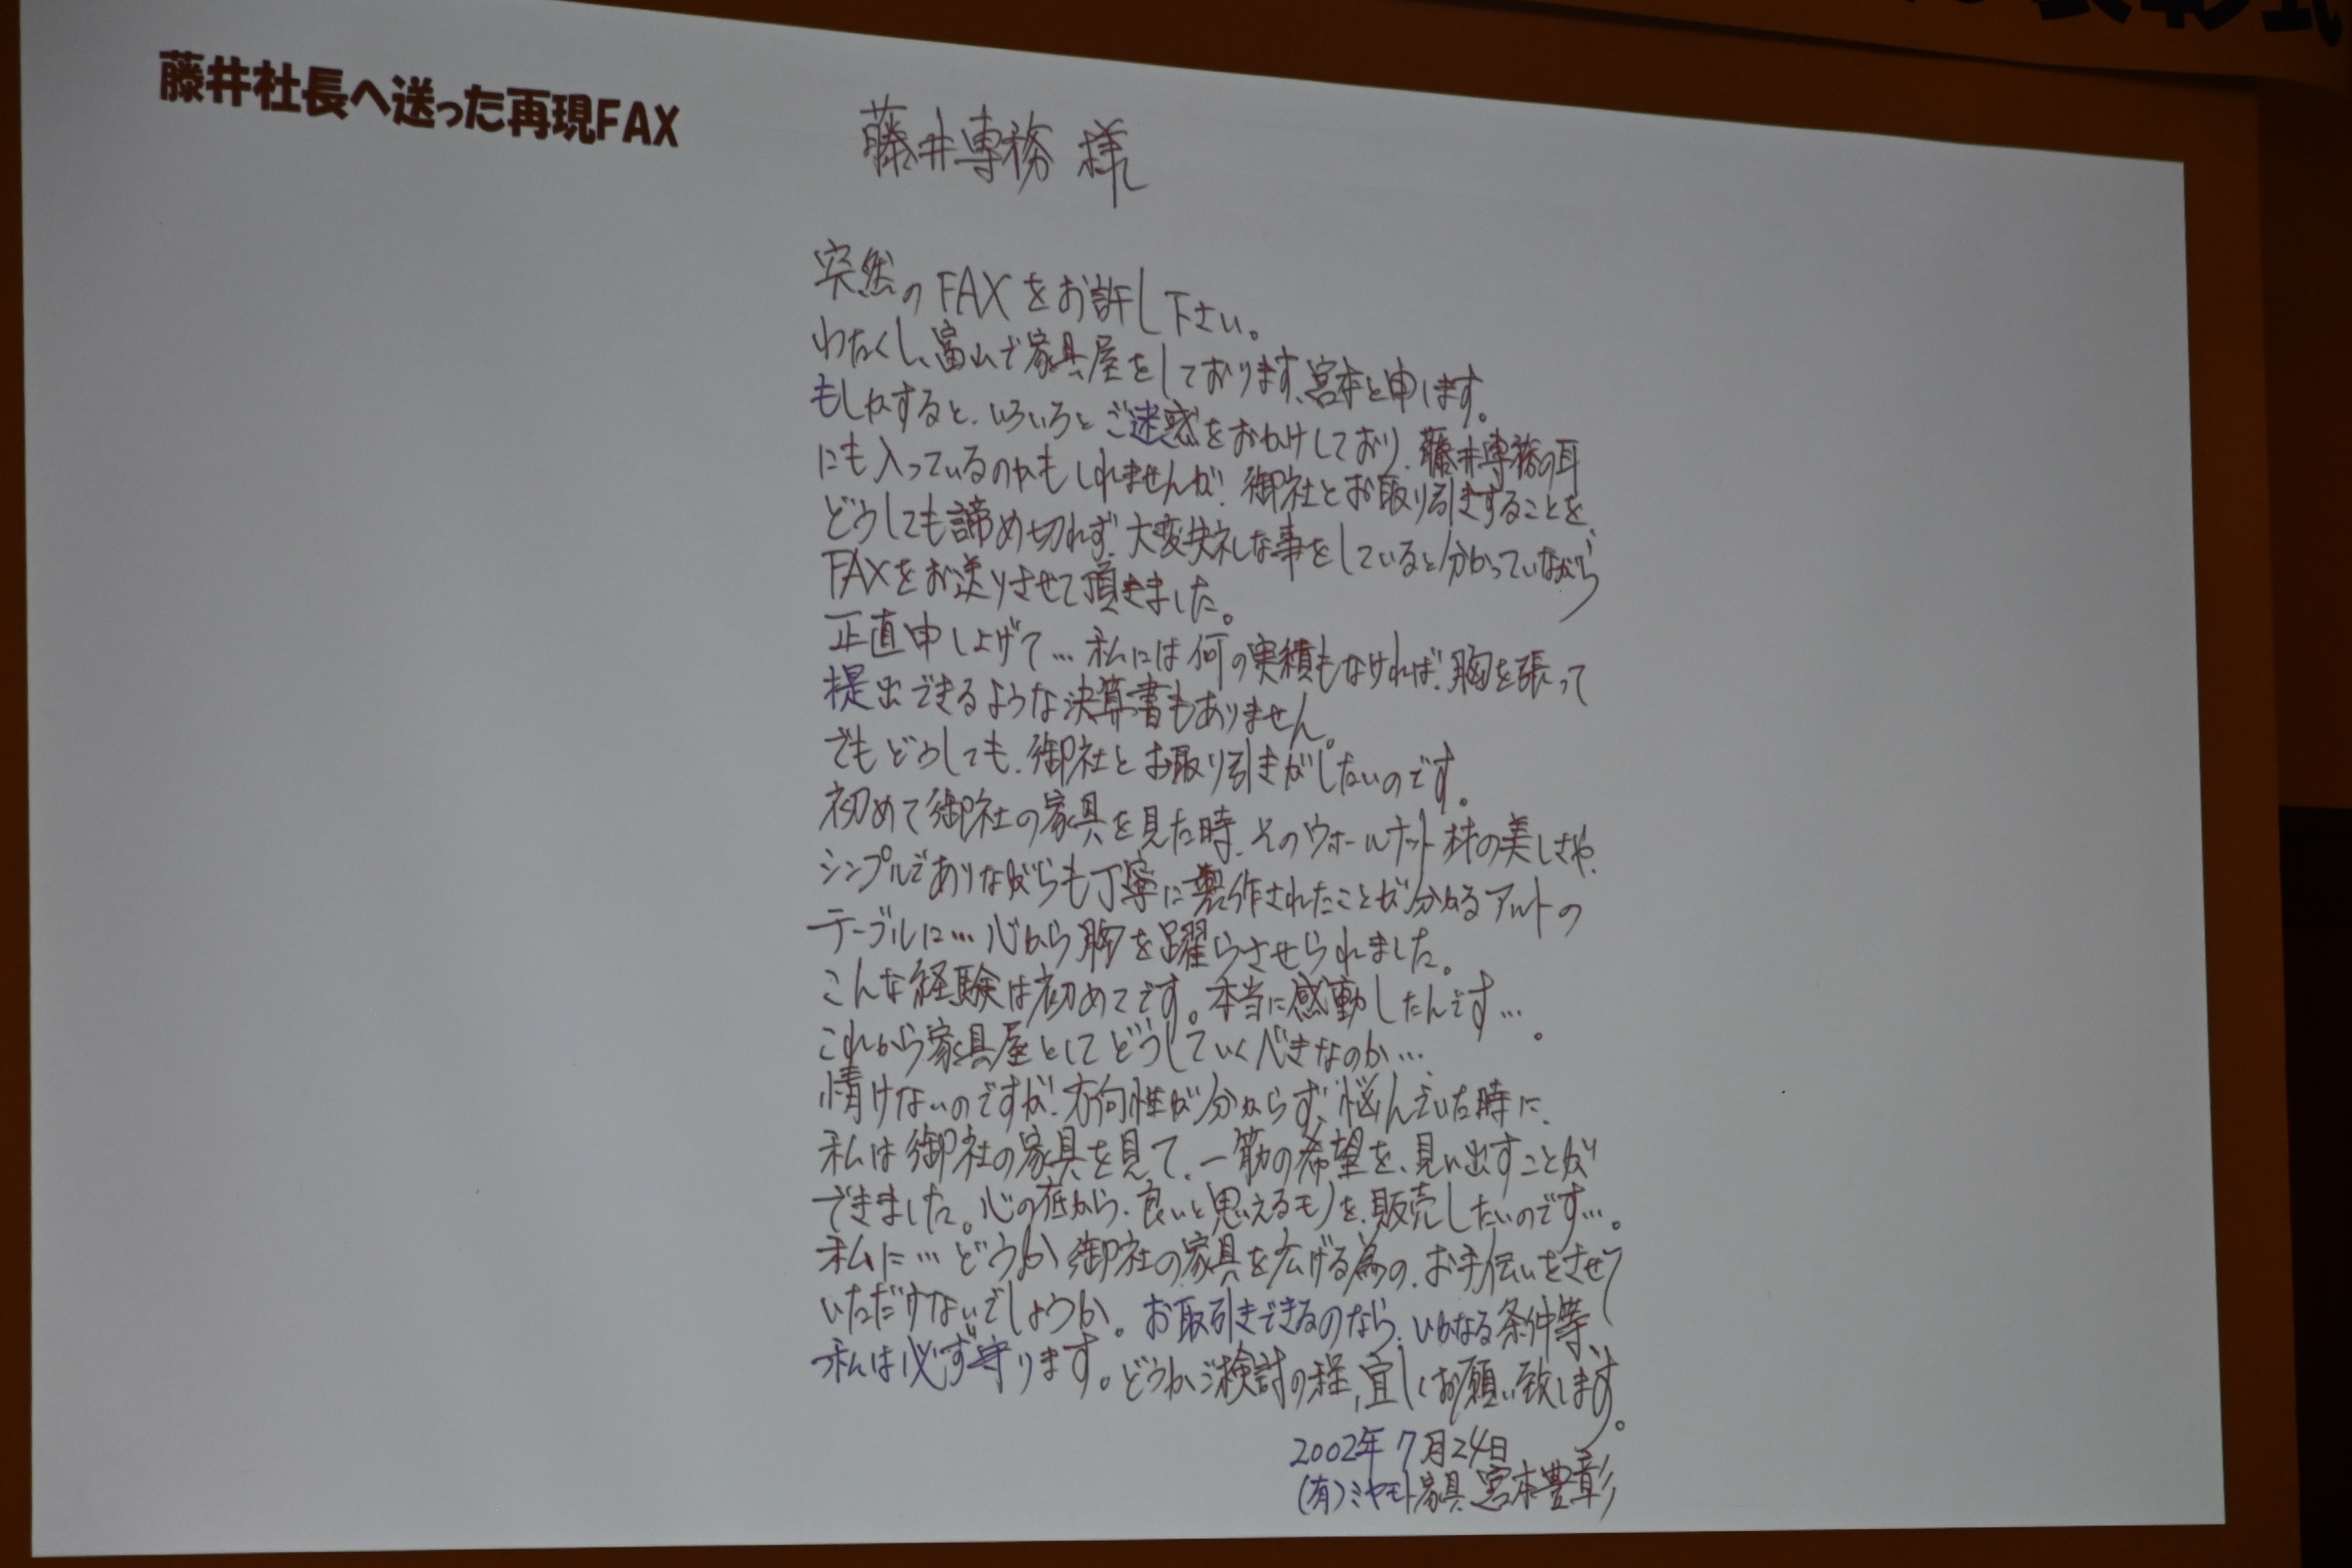 表彰式
藤井社長へ送った再現FAX
藤井専務 様
突然のFAXをお許し下さい。
わたくし、富山で家具屋をしております、宮本と申します。
もしかすると、いろいろとご迷惑をおかけしており、藤井専務の耳
にも入っているのかもしれませんが、御社とお取り引きすることを、
どうしても諦め切れず、大変失礼な事をしていると分かっていながら
FAXをお送りさせて頂きました。
正直申し上げて…私には何の実績もなければ、胸を張って
提出できるような決算書もありません。
でもどうしても、御社とお取り引きがしたいのです。
初めて御社の家具を見た時、そのウォールナット材の美しさや、
シンプルでありながらも丁寧に製作されたことが分かるアルトの
テーブルに…心から胸を躍らさせられました。
こんな経験は初めてです。本当に感動したんです…。
これから家具屋としてどうしていくべきなのか…
情けないのですが、方向性が分からず、悩んでいた時に、
私は御社の家具を見て、一筋の希望を、見い出すことが
できました。心の底から、良いと思えるモノを、販売したいのです…。
私に…どうか御社の家具を広げる為の、お手伝いをさせて
いただけないでしょうか。お取引きできるのなら、いかなる条件等、
私は必ず守ります。どうかご検討の程、宜しくお願い致します。
2002年7月24日
(有)ミヤモト家具 宮本豊彰